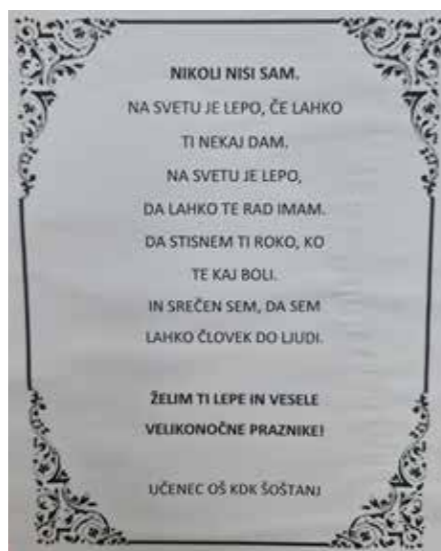 NIKOLI NISI SAM.
NA SVETU JE LEPO, ČE LAHKO
TI NEKAJ DAM.
NA SVETU JE LEPO,
DA LAHKO TE RAD IMAM.
DA STISNEM TI ROKO, KO
TE KAJ BOLI.
IN SREČEN SEM, DA SEM
LAHKO ČLOVEK DO LJUDI.
ŽELIM TI LEPE IN VESELE
VELIKONOČNE PRAZNIKE!
UČENEC OŠ KDK ŠOŠTANJ